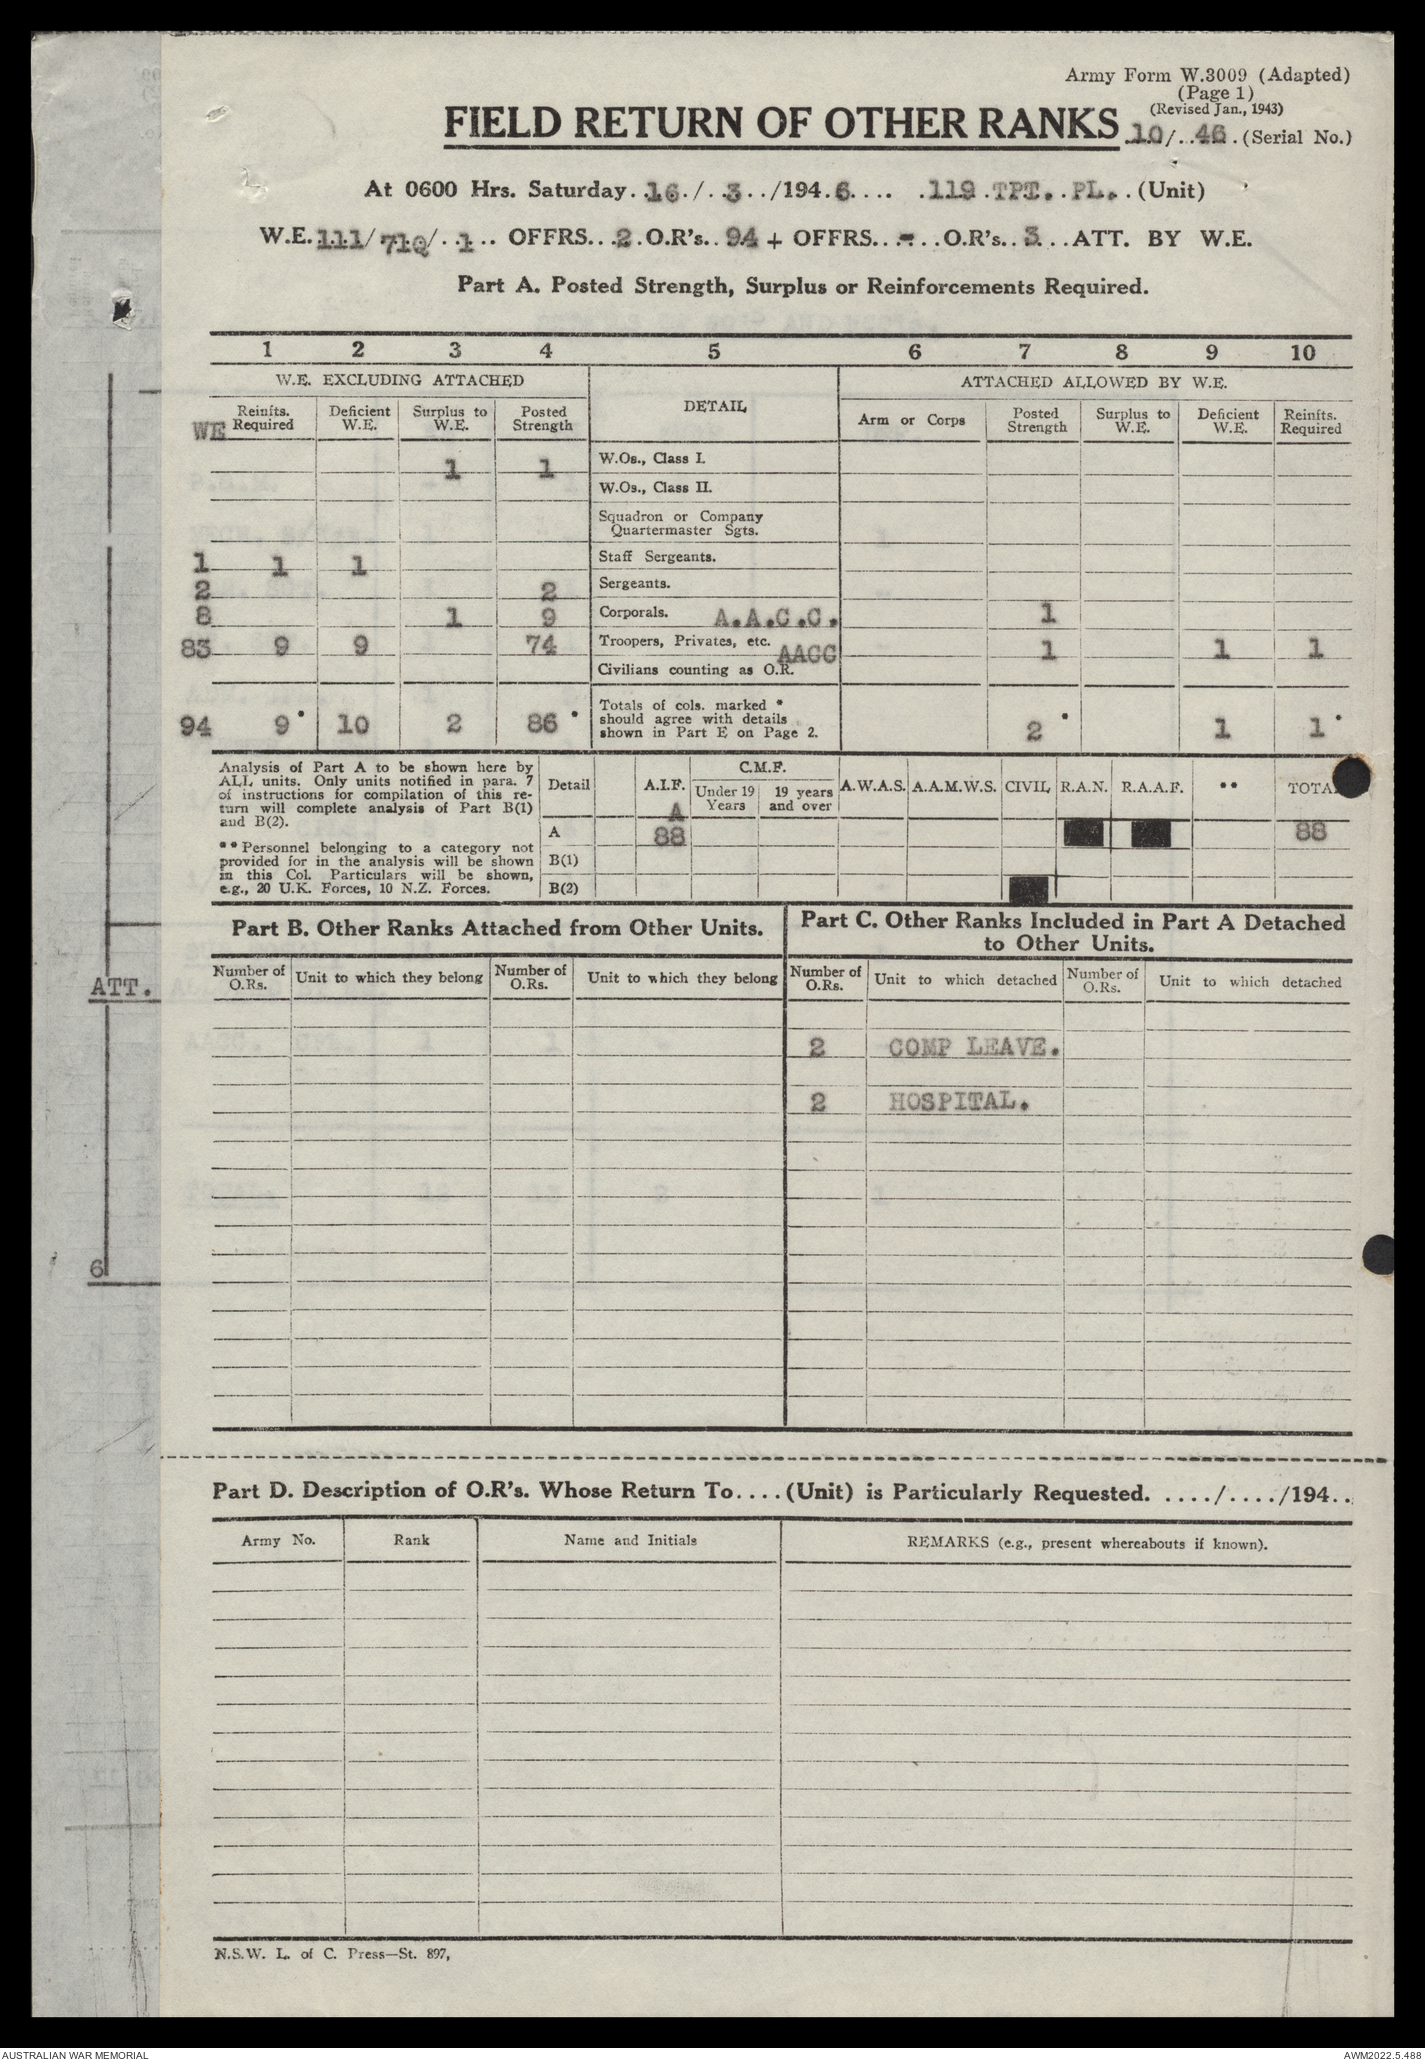 Army Form W.3009 (Adapted)
(Page 1)
(Revised Jan., 1943)
FIELD RETURN OF OTHER RANKS 10/..46.(Serial No.)
At 0600 Hrs. Saturday..16./..3../194.6.... .119.TPT..PL..(Unit)
W.E.111/710/..1.. OFFRS...2.O.R's..94 + OFFRS..-..O.R's..3...ATT. BY W.E.
Part A. Posted Strength, Surplus or Reinforcements Required.
1 2 3 4 5 6 7 8 9 10
W.E. EXCLUDING ATTACHED DETAIL ATTACHED ALLOWED BY W.E.
WE Reinfts. Required Deficient W.E. Surplus to W.E. Posted Strength Arm or Corps Posted Strength Surplus to W.E. Deficient W.E. Reinfts. Required
1 1 W.Os., Class I.
W.Os., Class II.
Squadron or Company
Quartermaster Sgts.
1 1 1 Staff Sergeants.
2 2 Sergeants.
8 1 9 Corporals. A.A.C.C. 1
83 9 9 74 Troopers, Privates, etc. AACC 1 1 1
Civilians counting as O.R.
Totals of cols. marked *
should agree with details
shown in Part E on Page 2.
94 9* 10 2 86* 2* 1 1*
Analysis of Part A to be shown here by
ALL units. Only units notified in para. 7
of instructions for compilation of this re-
turn will complete analysis of Part B(1)
and B(2).
**Personnel belonging to a category not
provided for in the analysis will be shown
in this Col. Particulars will be shown,
e.g., 20 U.K. Forces, 10 N.Z. Forces.
Detail A.I.F. C.M.F. A.W.A.S. A.A.M.W.S. CIVIL R.A.N. R.A.A.F. ** TOTA
Under 19 Years 19 years and over
A
A 88 88
B(1)
B(2)
Part B. Other Ranks Attached from Other Units.
Number of O.Rs. Unit to which they belong Number of O.Rs. Unit to which they belong
Part C. Other Ranks Included in Part A Detached
to Other Units.
Number of O.Rs. Unit to which detached Number of O.Rs. Unit to which detached
ATT.
2 COMP LEAVE.
2 HOSPITAL.
6
Part D. Description of O.R's. Whose Return To....(Unit) is Particularly Requested. ..../..../194..
Army No. Rank Name and Initials REMARKS (e.g., present whereabouts if known).
N.S.W. L. of C. Press—St. 897,
AUSTRALIAN WAR MEMORIAL
AWM2022.5.488